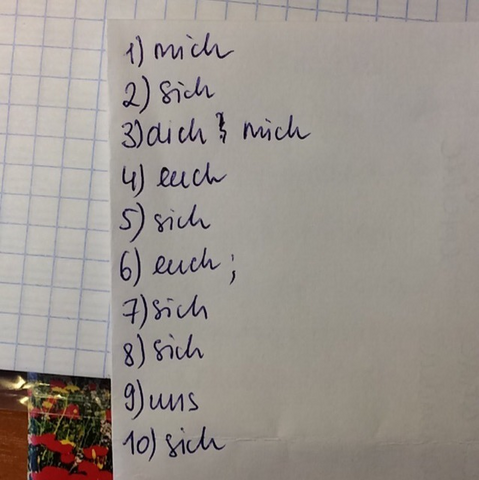 1) mich
2) sich
3) dich ; mich
4) euch
5) sich
6) euch ;
7) sich
8) sich
9) uns
10) sich